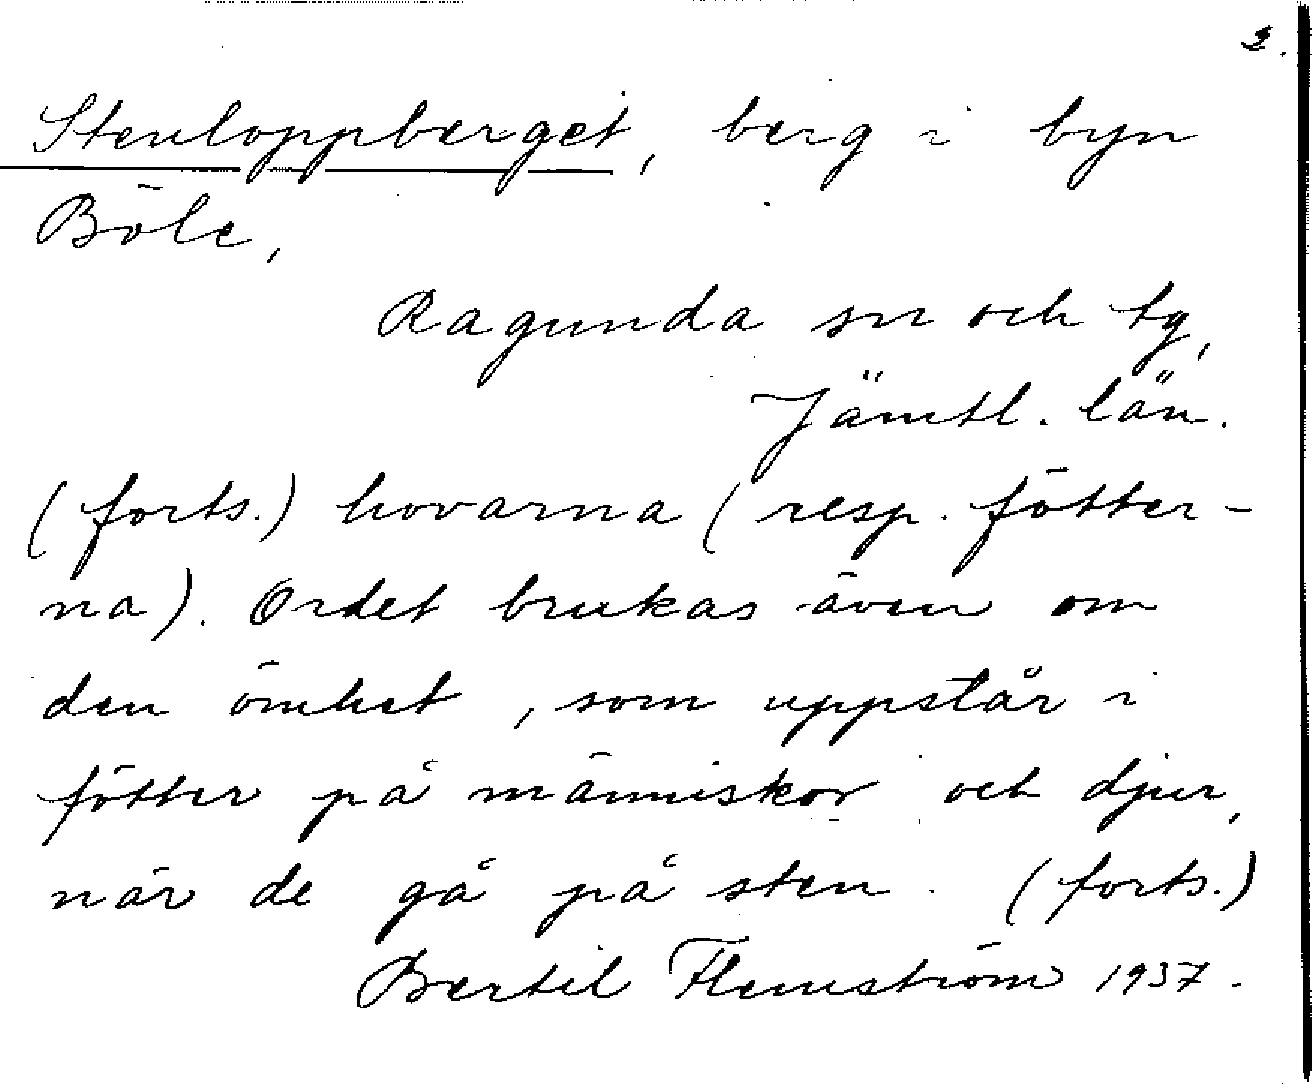 2.
Stenloppberget, berg i byn
Böle,
Ragunda sn och tg,
Jämtl. län.
(forts.) hovarna (resp. fötter-
na). Ordet brukas även om
den ömhet, som uppstår i
fötter på människor och djur,
när de gå på sten. (forts.)
Bertil Flemström 1937.